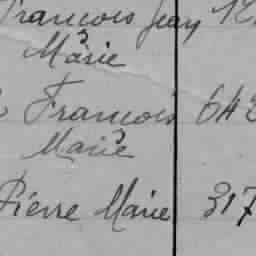 François Jean 12
Marie
François 643
Marie
Pierre Marie 317